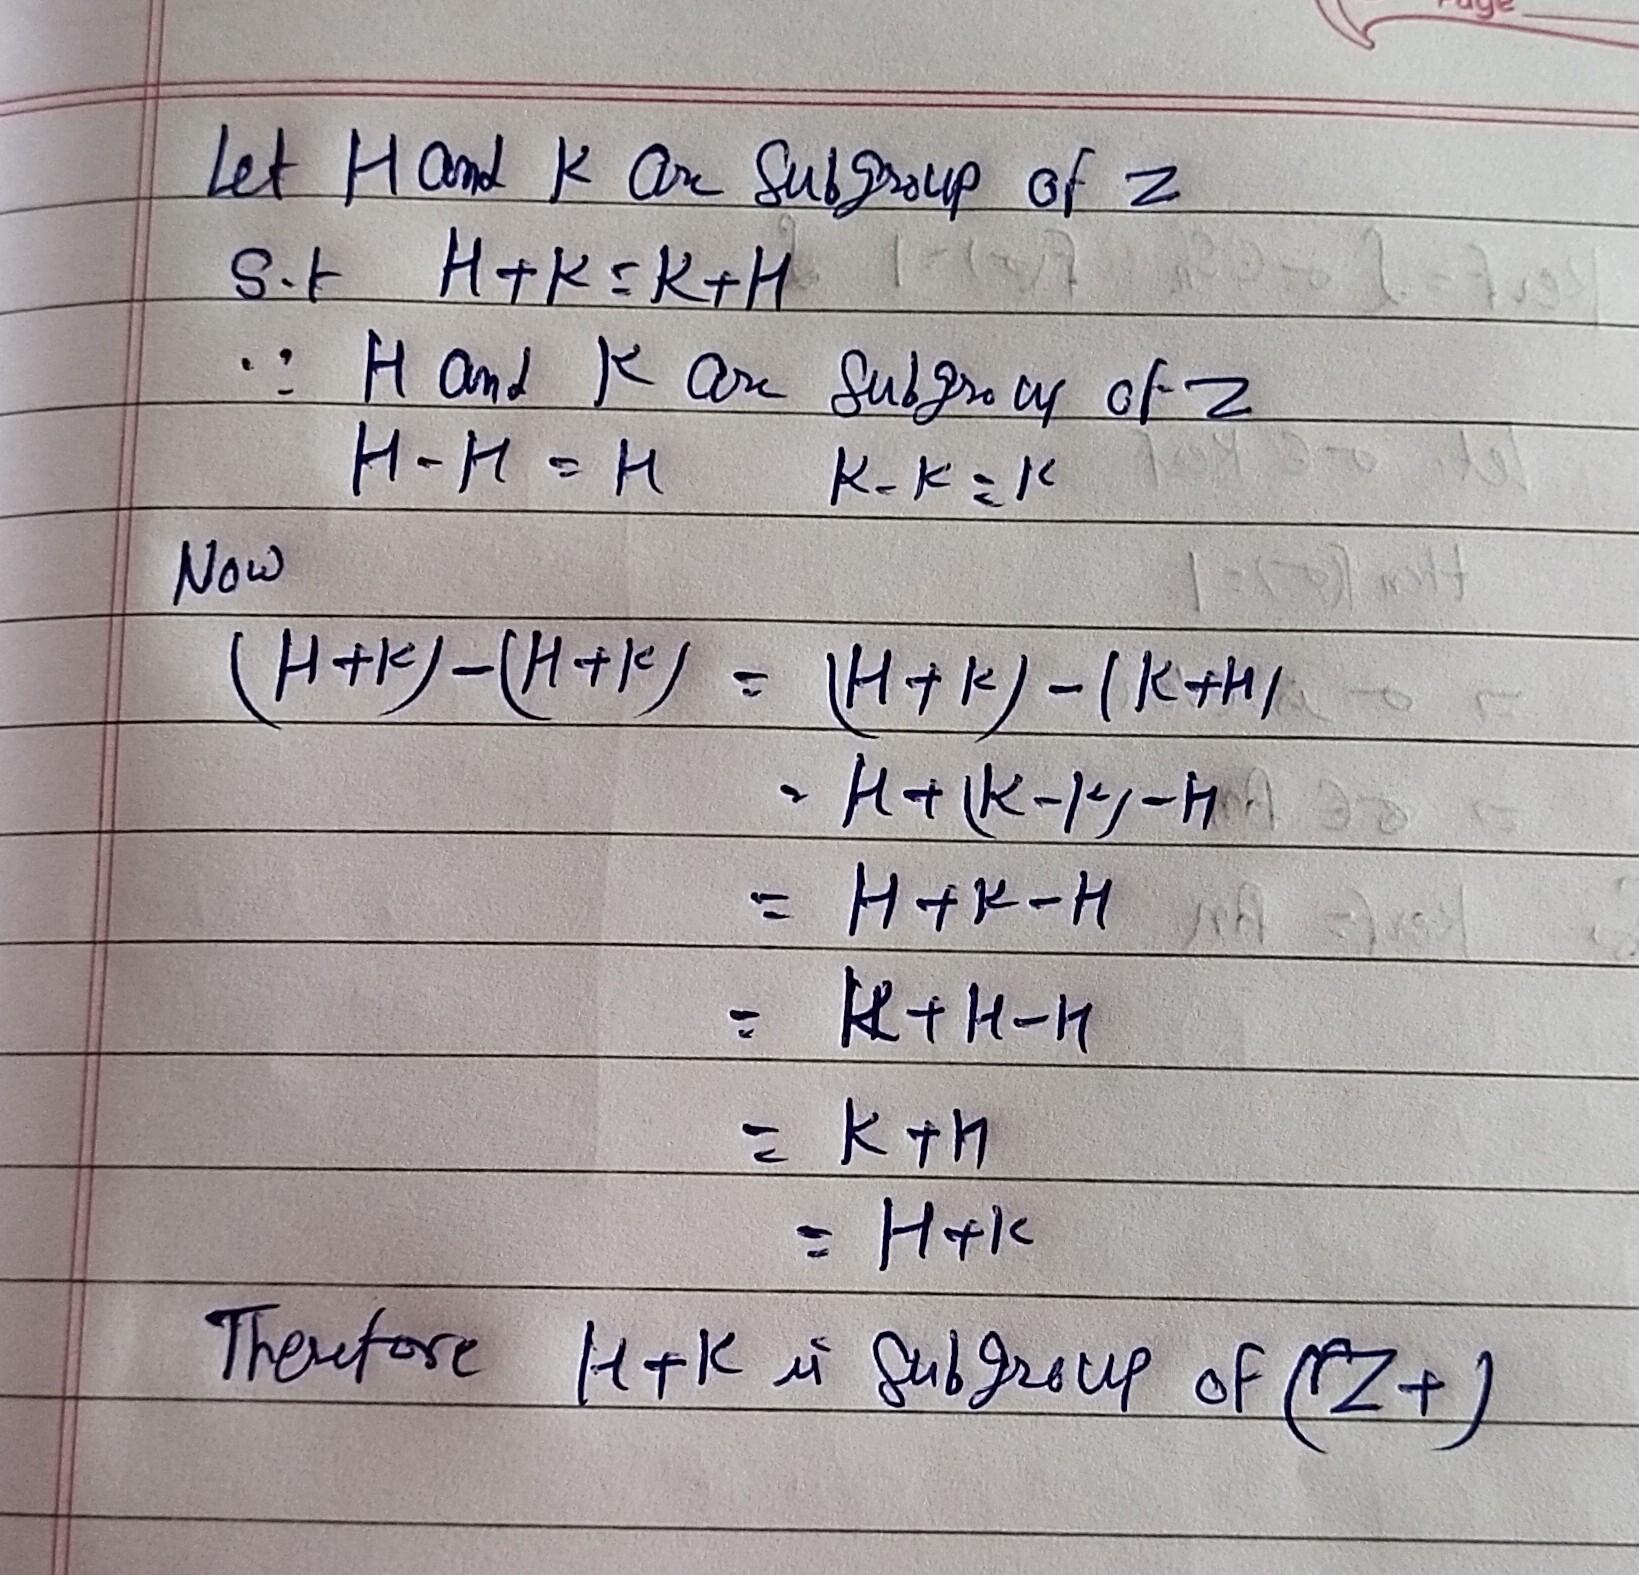 Page
Let H and K are Subgroup of Z
S.t H+K=K+H
∵ H and K are Subgroup of Z
H-H = H K-K=K
Now
(H+K)-(H+K) = (H+K)-(K+H)
= H+(K-K)-H
= H+K-H
= K+H-H
= K+H
= H+K
Therefore H+K is Subgroup of (Z+)